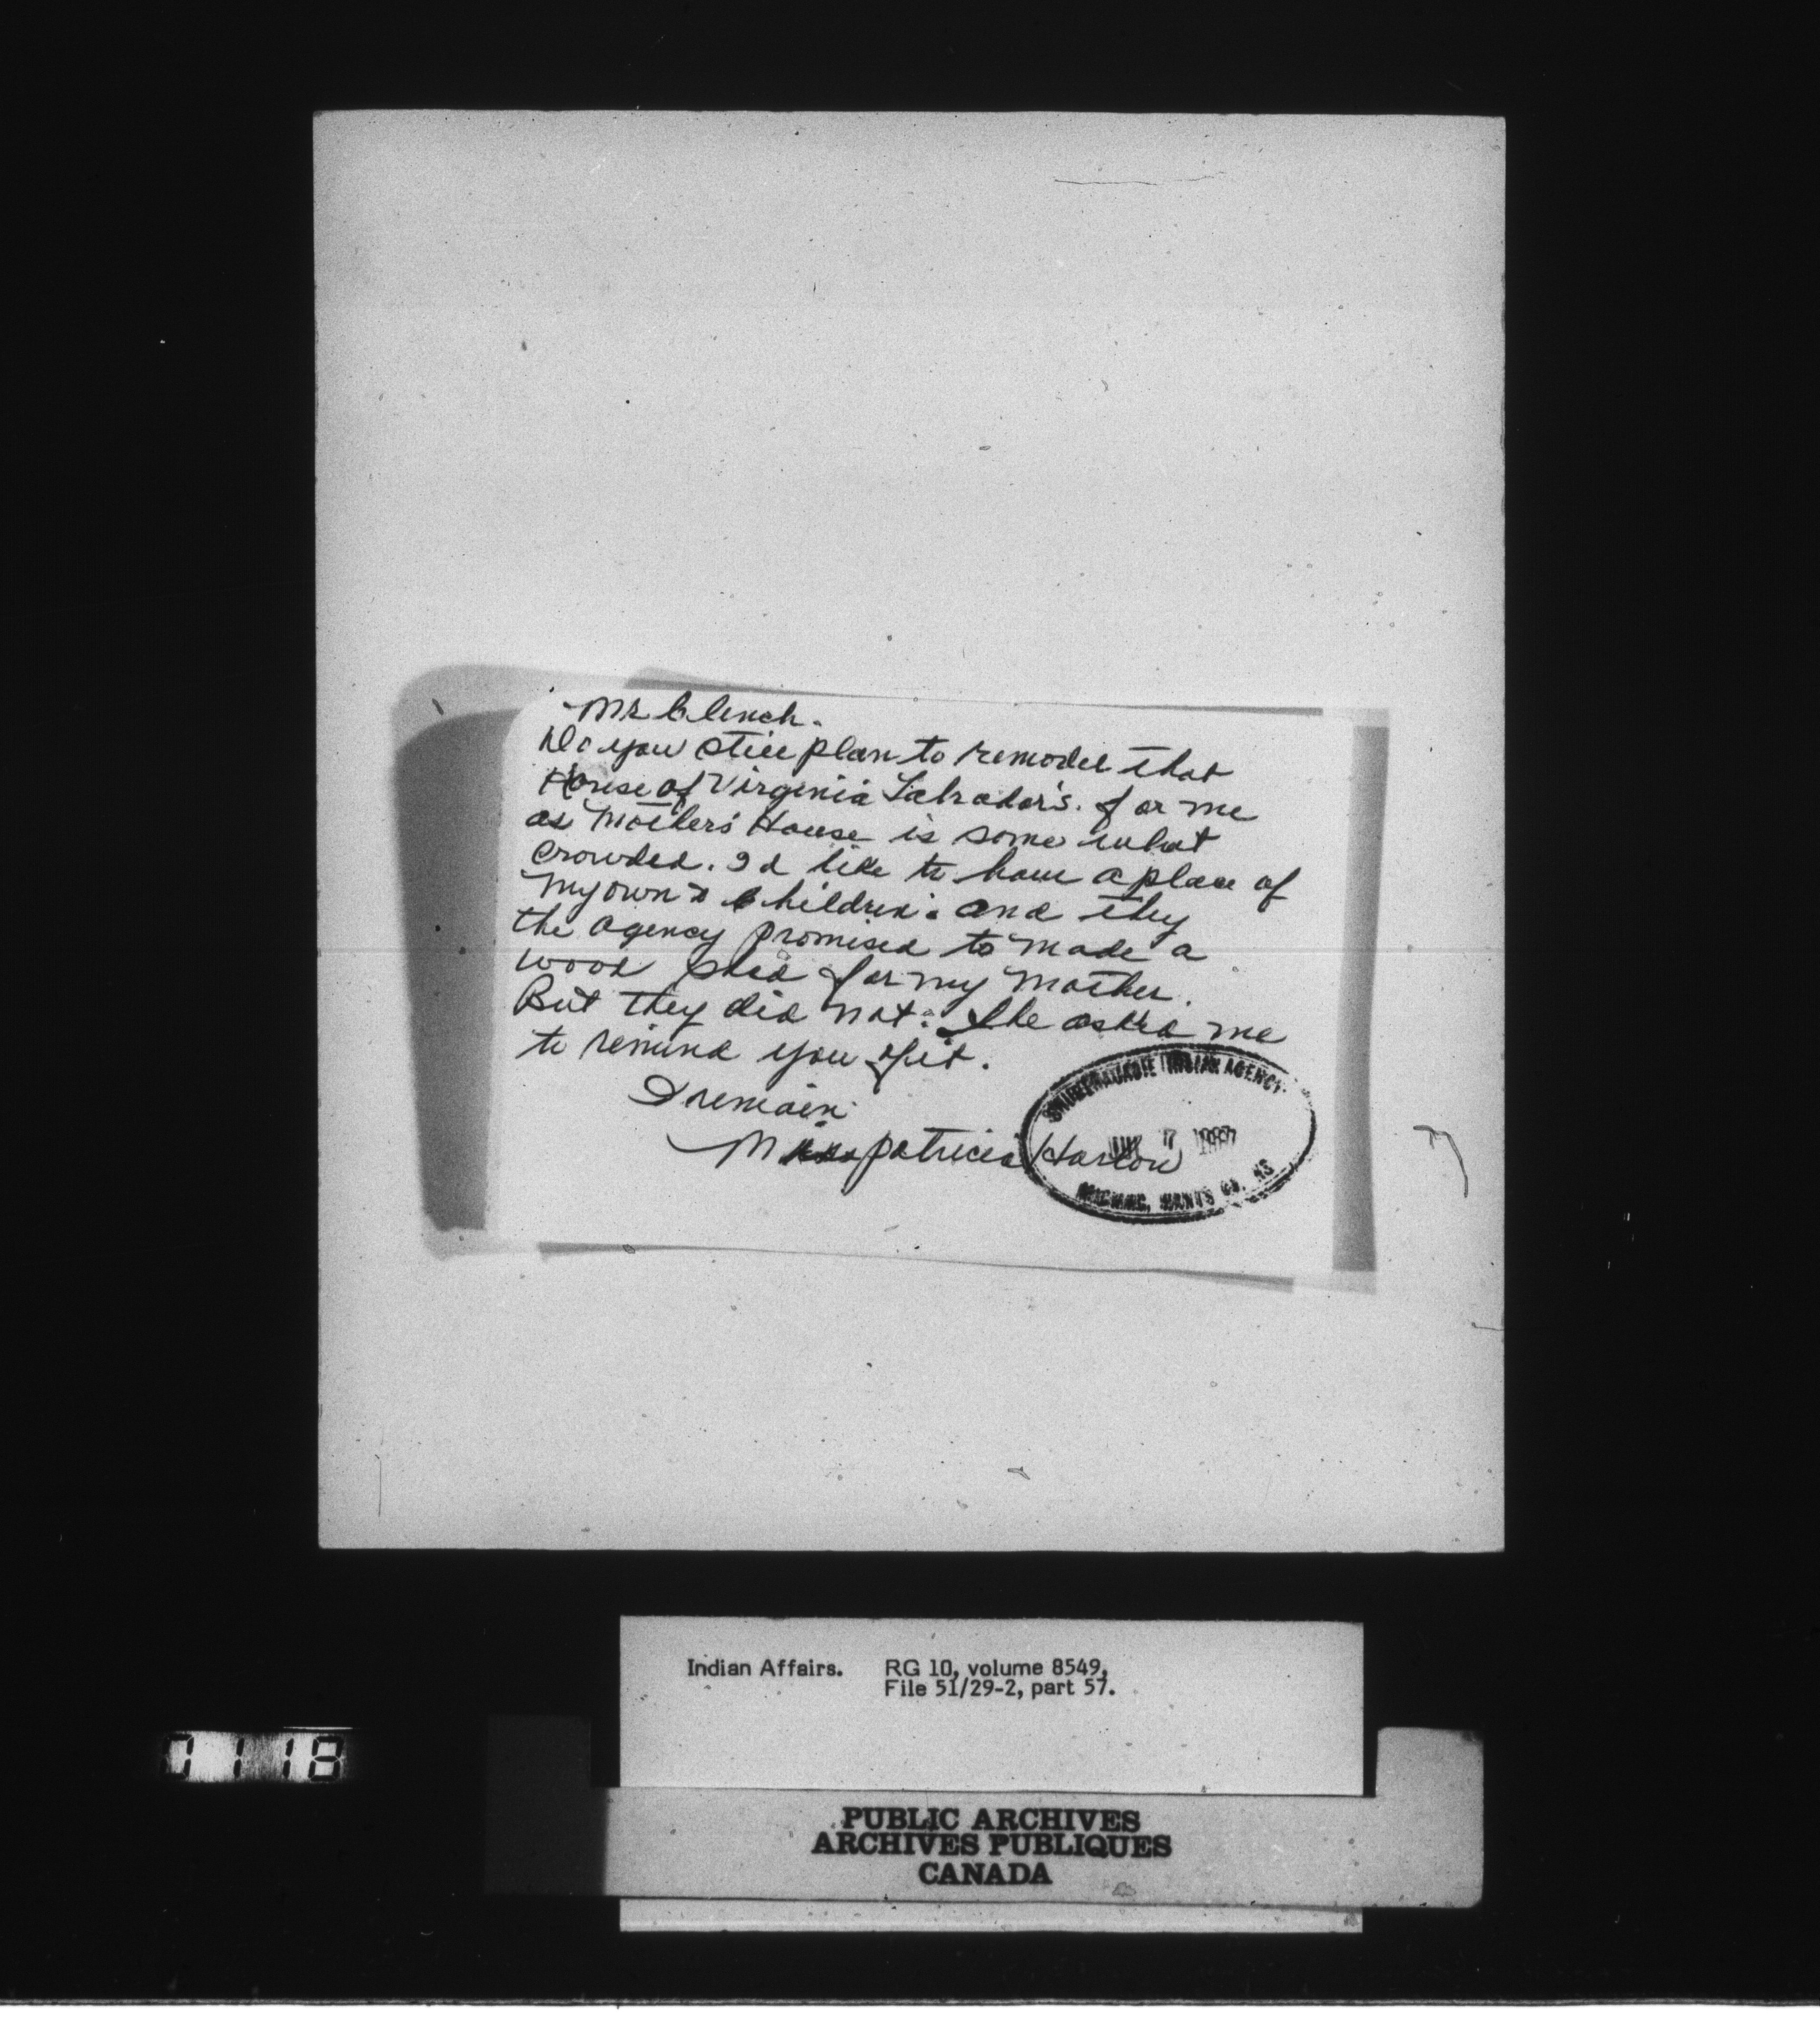 Mr Clench.
Do you still plan to remodel that
House of Virginia Labrador's. for me
as Mothers' House is some what
crowded. I d like to have a place of
my own & Children. and they
the agency promised to made a
wood shed for my Mother.
But they did not. She asked me
to remind you of it.
I remain
Patricia Harlow
SHUBENACADIE INDIAN AGENCY
MICMAC, HANTS CO. NS
Indian Affairs. RG 10, volume 8549,
File 51/29-2, part 57.
1118
PUBLIC ARCHIVES
ARCHIVES PUBLIQUES
CANADA